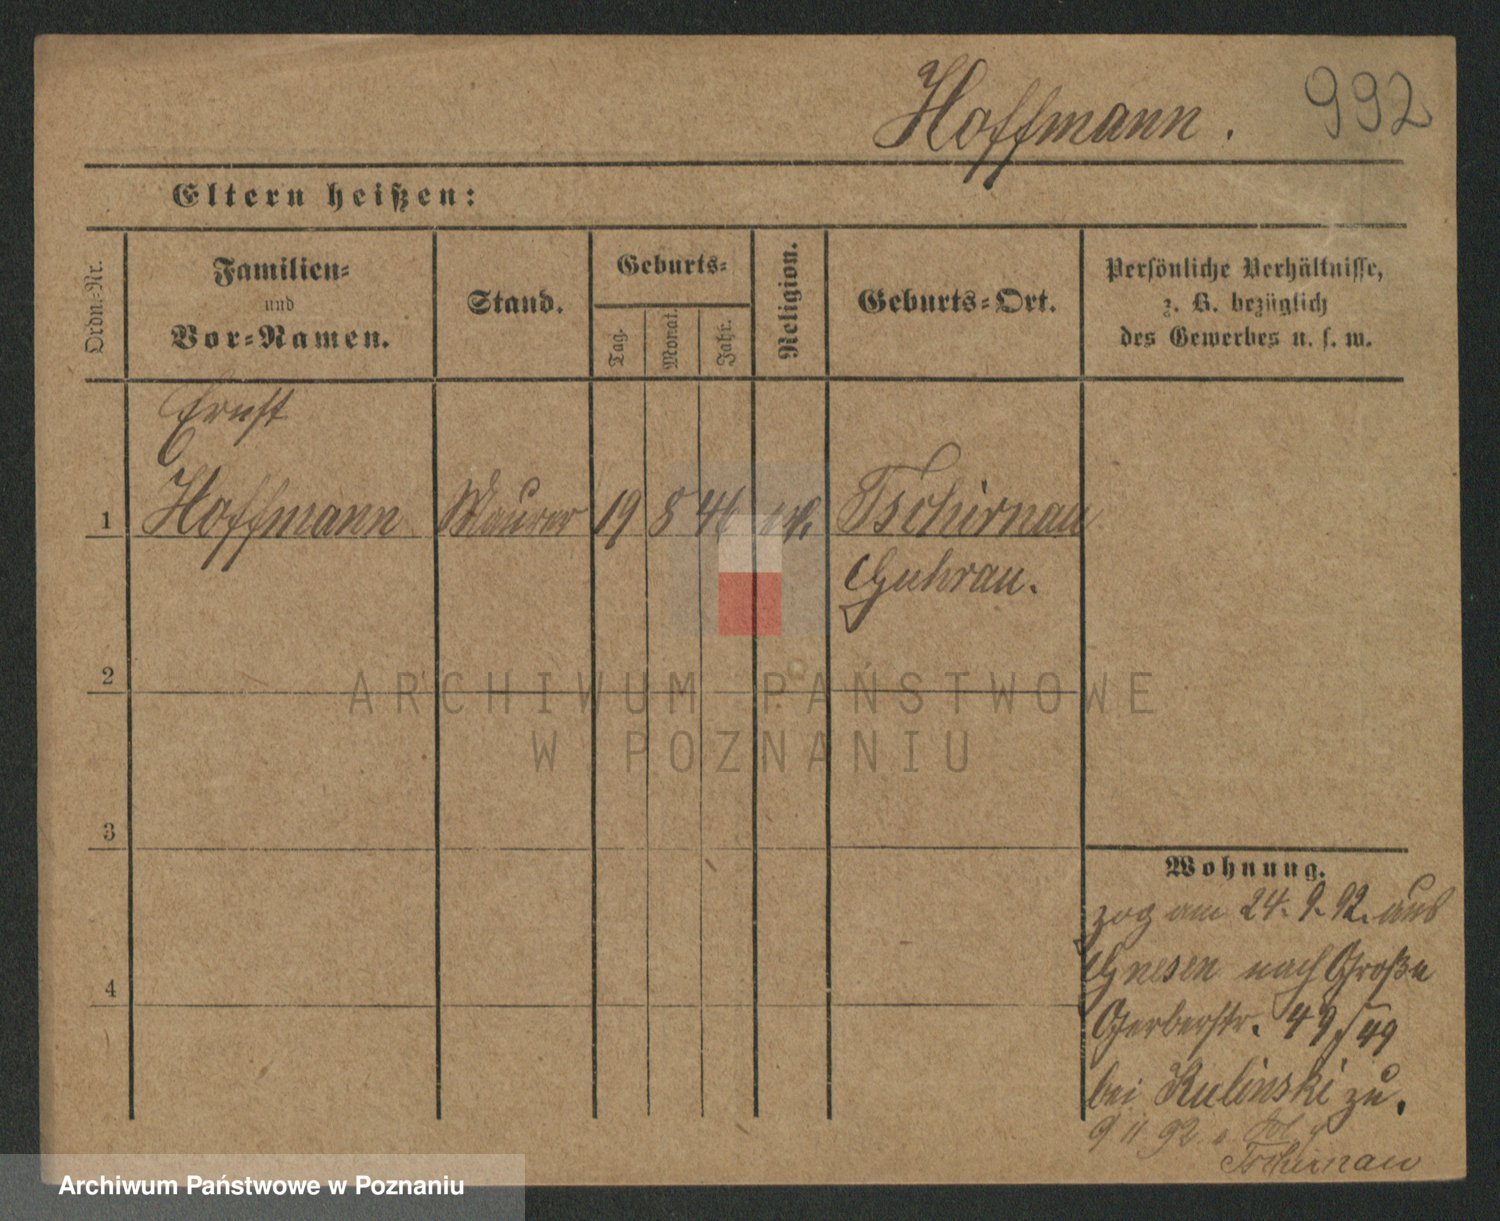 Hoffmann.
992
Eltern heißen:
Ordn.=Nr.
Familien=
und
Vor=Namen.
Stand.
Geburts=
Tag.
Monat.
Jahr.
Religion.
Geburts=Ort.
Persönliche Verhältnisse,
z. B. bezüglich
des Gewerbes u. s. w.
Ernst
1 Hoffmann Maurer 19 8 46 Tschirnau
Guhrau.
2
3
4
ARCHIWUM PAŃSTWOWE
W POZNANIU
Wohnung.
zog am 24. 9. 92. aus
Gnesen nach Große
Gerberstr. 49
bei Kulinski zu.
9 11 92
Tschirnau
Archiwum Państwowe w Poznaniu